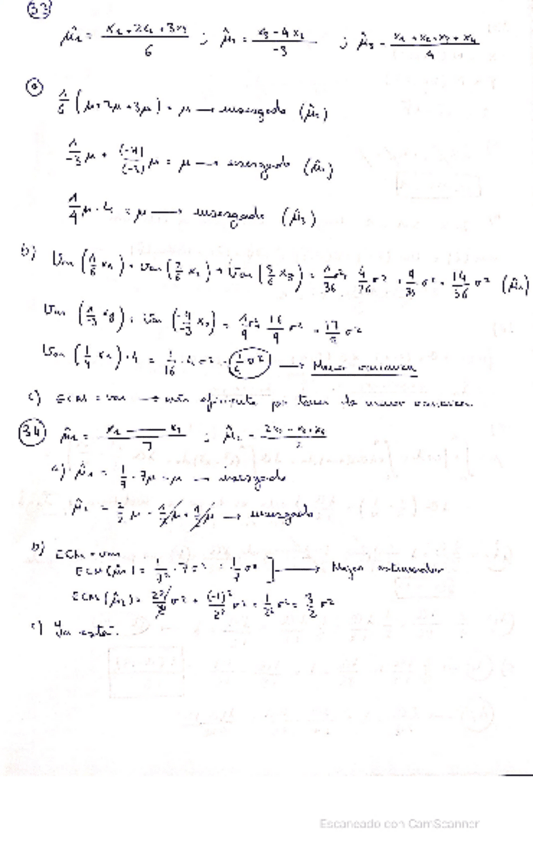 33
μ̂₁ = (x₁+2x₂+3x₃)/6 ; μ̂₂ = (x₃-4x₂)/-3 ; μ̂₃ = (x₁+x₂+x₃+x₄)/4
a) 1/6 (μ+2μ+3μ) = μ → insesgado (μ̂₁)
1/-3 μ + (-4)/(-3) μ = μ → insesgado (μ̂₂)
1/4 μ · 4 = μ → insesgado (μ̂₃)
b) Var (1/6 x₁) + Var (2/6 x₂) + Var (3/6 x₃) = 1/36 σ² + 4/36 σ² + 9/36 σ² = 14/36 σ² (μ̂₁)
Var (1/-3 x₃) + Var (-4/-3 x₂) = 1/9 σ² + 16/9 σ² = 17/9 σ²
Var (1/4 x₁) · 4 = 1/16 · 4 σ² = 1/4 σ² → Menor varianza
c) ECM = var → más eficiente por tener la menor varianza.
34 μ̂₁ = (x₁ — x₇)/7 ; μ̂₂ =
a) μ̂₁ = 1/7 · 7μ = μ → insesgado
μ̂₂ = 2/2 μ - 1/2 μ + 1/2 μ → insesgado
b) ECM = var
ECM (μ̂₁) = 1/7² · 7σ² = 1/7 σ² → Mejor estimador
ECM (μ̂₂) = 2²/2² σ² + (-1)²/2² σ² + 1/2² σ² = 3/2 σ²
c) Ya está.
Escaneado con CamScanner